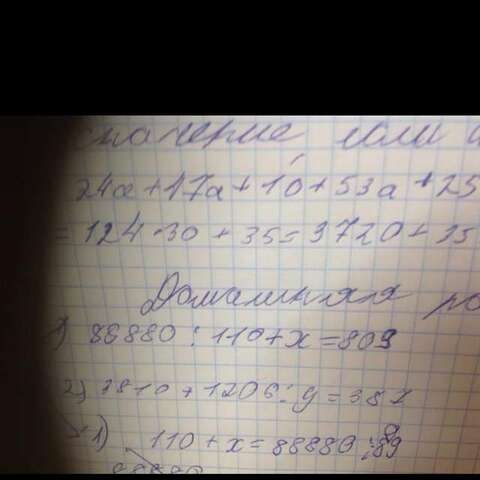 значение, если
24a+17a+10+53a+25
=124·30+35=3720+35
Домашняя
1) 88880:110+x=809
2) 3810+1206:y=387
1) 110+x=88880:89